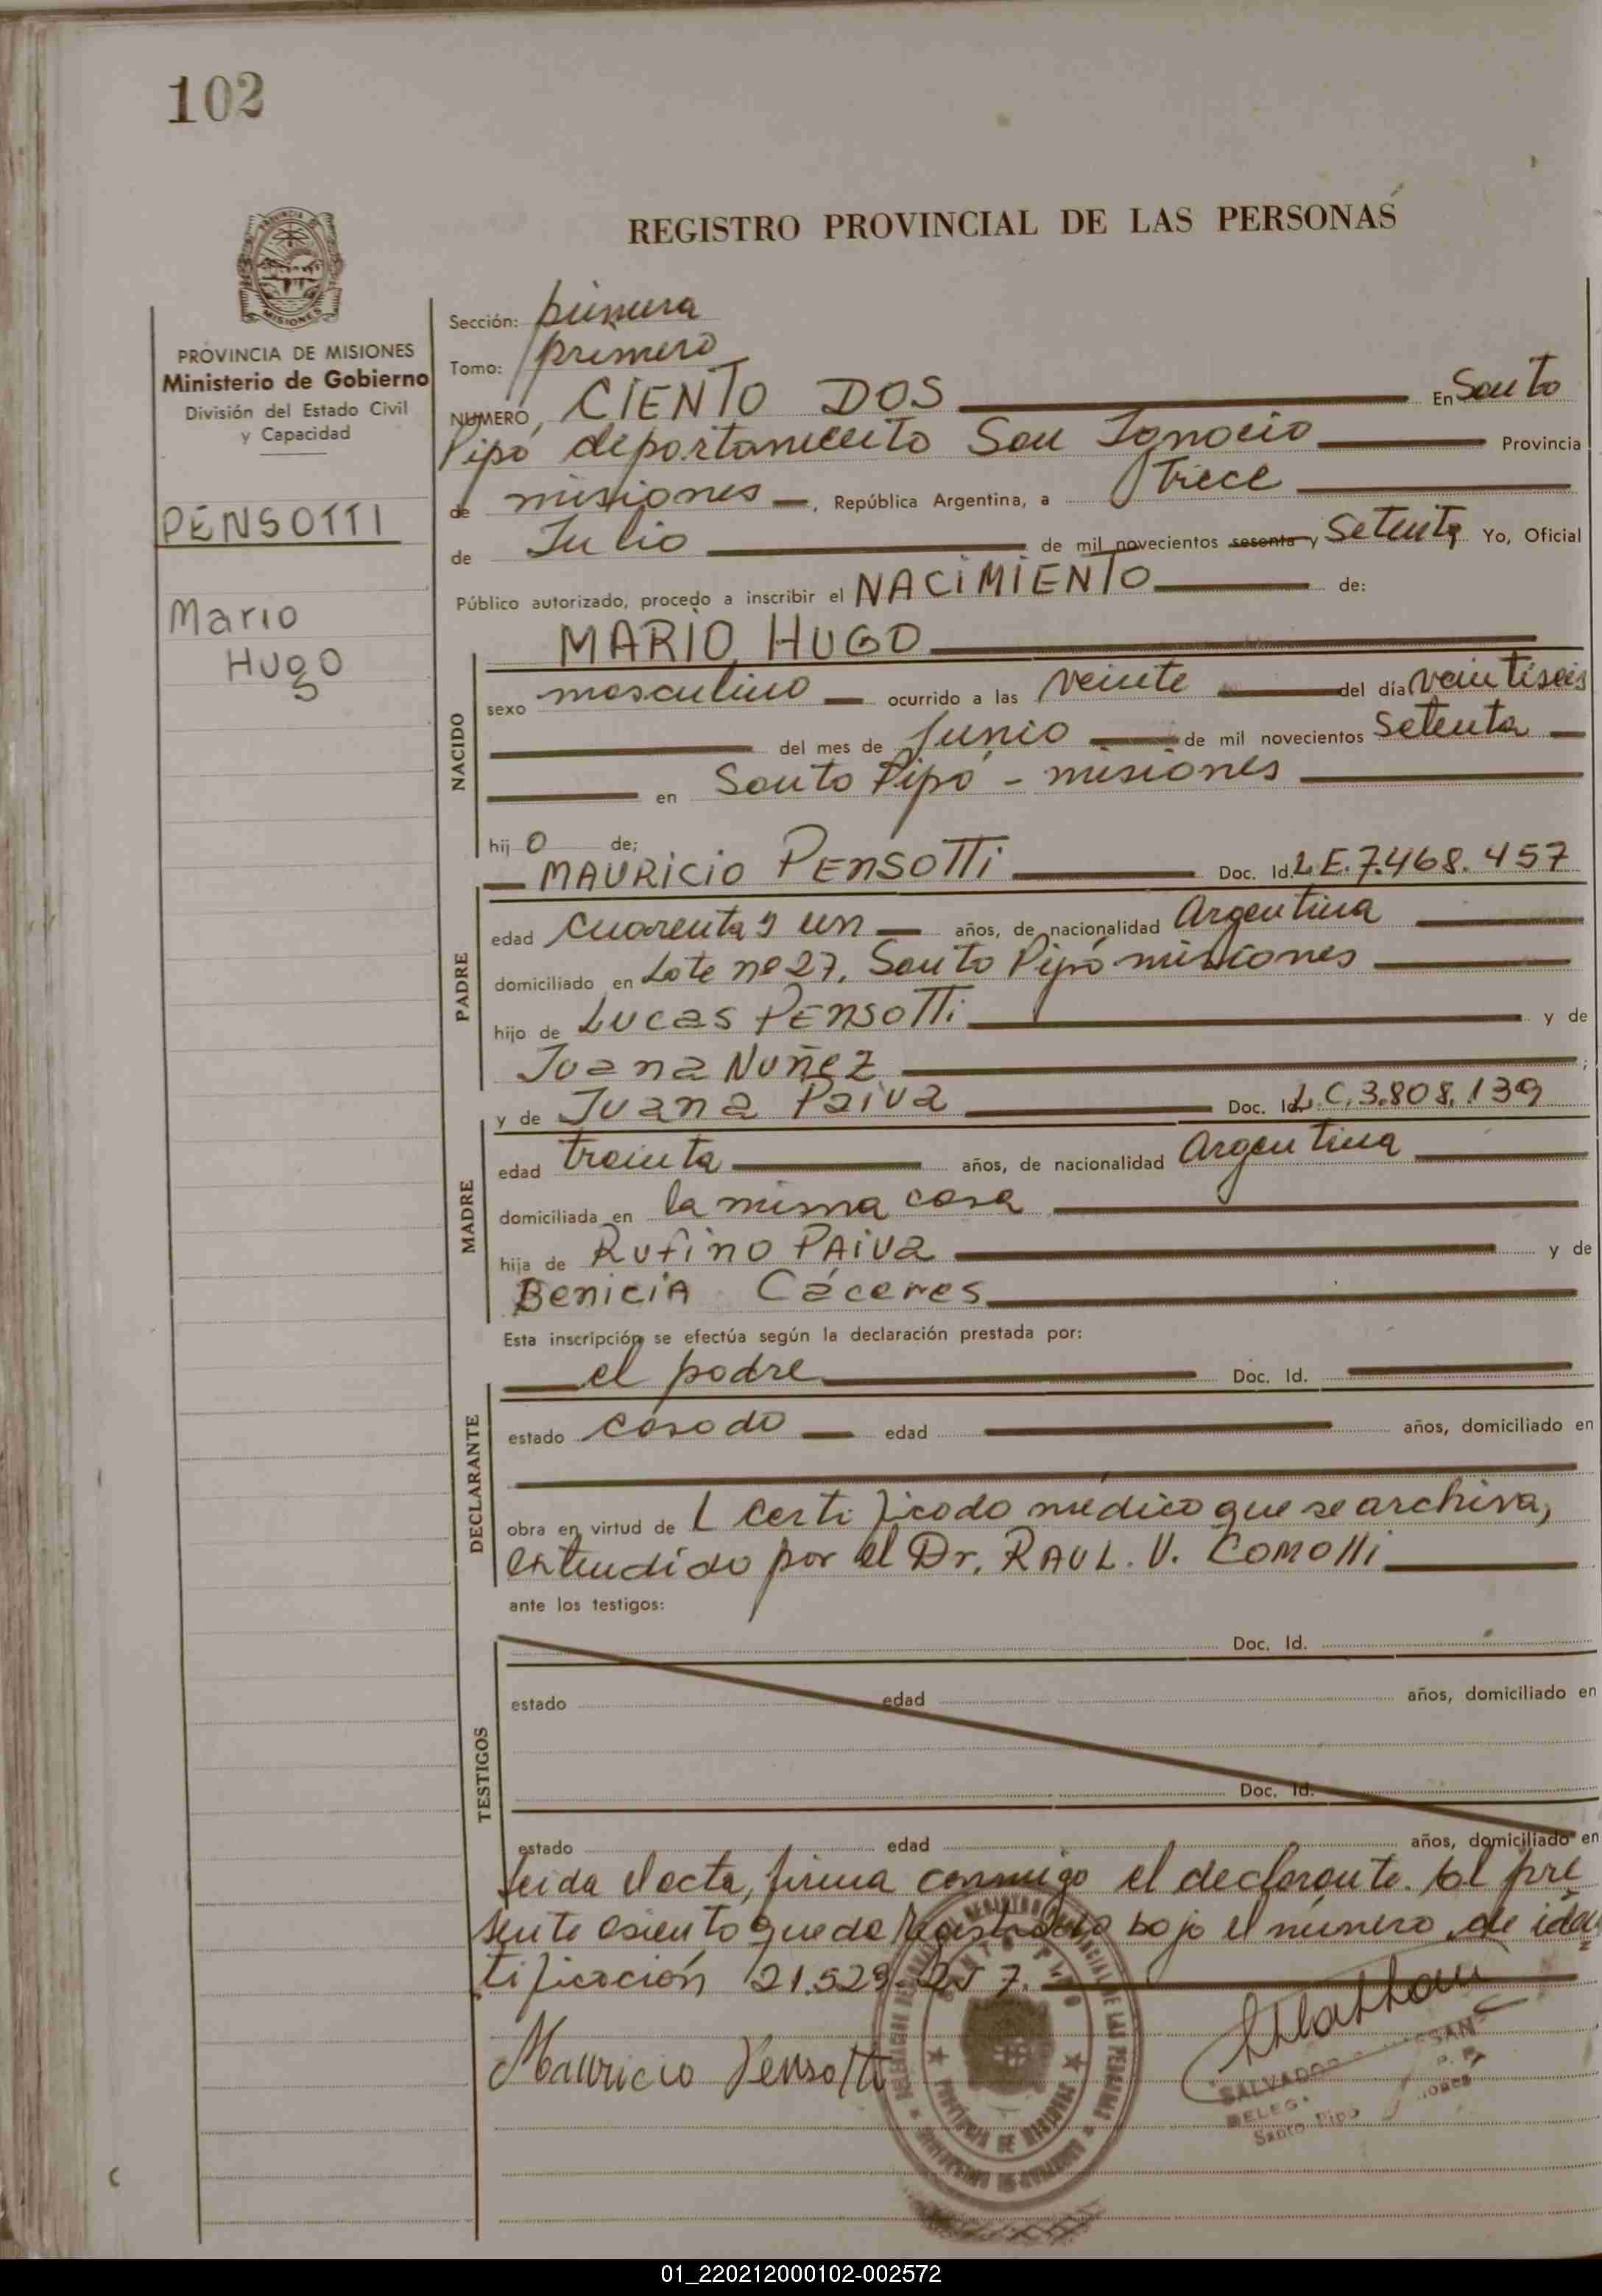 102
REGISTRO PROVINCIAL DE LAS PERSONAS
PROVINCIA DE MISIONES
Ministerio de Gobierno
División del Estado Civil
y Capacidad
PENSOTTI
Mario
Hugo
Sección: primera
Tomo: primero
NUMERO, CIENTO DOS En Santo
Pipó departamento San Ignacio Provincia
de misiones, República Argentina, a trece
de Julio de mil novecientos sesenta y Setenta Yo, Oficial
Público autorizado, procedo a inscribir el NACIMIENTO de:
MARIO HUGO
NACIDO
sexo masculino ocurrido a las veinte del día veintiseis
del mes de Junio de mil novecientos setenta
en Santo Pipó - misiones
hijo de:
MAURICIO PENSOTTI Doc. Id. L.E.7.468.457
PADRE
edad cuarenta y un años, de nacionalidad Argentina
domiciliado en Lote nº 27, Santo Pipó misiones
hijo de Lucas PENSOTTi y de
Juana Nuñez ;
y de Juana Paiva Doc. Id. L.C.3.808.139
MADRE
edad treinta años, de nacionalidad Argentina
domiciliada en la misma casa
hija de Rufino PAiva y de
Benicia Cáceres
Esta inscripción se efectúa según la declaración prestada por:
el padre Doc. Id.
DECLARANTE
estado casado edad años, domiciliado en
obra en virtud de l certificado médico que se archiva,
extendido por el Dr. RAUL. V. COMOlli
ante los testigos:
TESTIGOS
Doc. Id.
estado edad años, domiciliado en
Doc. Id.
estado edad años, domiciliado en
Leida el acta, firma conmigo el declarante. El pre
sente asiento queda registrado bajo el número de iden
tificación 21.529.257.
Mauricio Pensotti
SALVADOR
DELEG.
Santo Pipó
PROVINCIA DE MISIONES
01_220212000102-002572